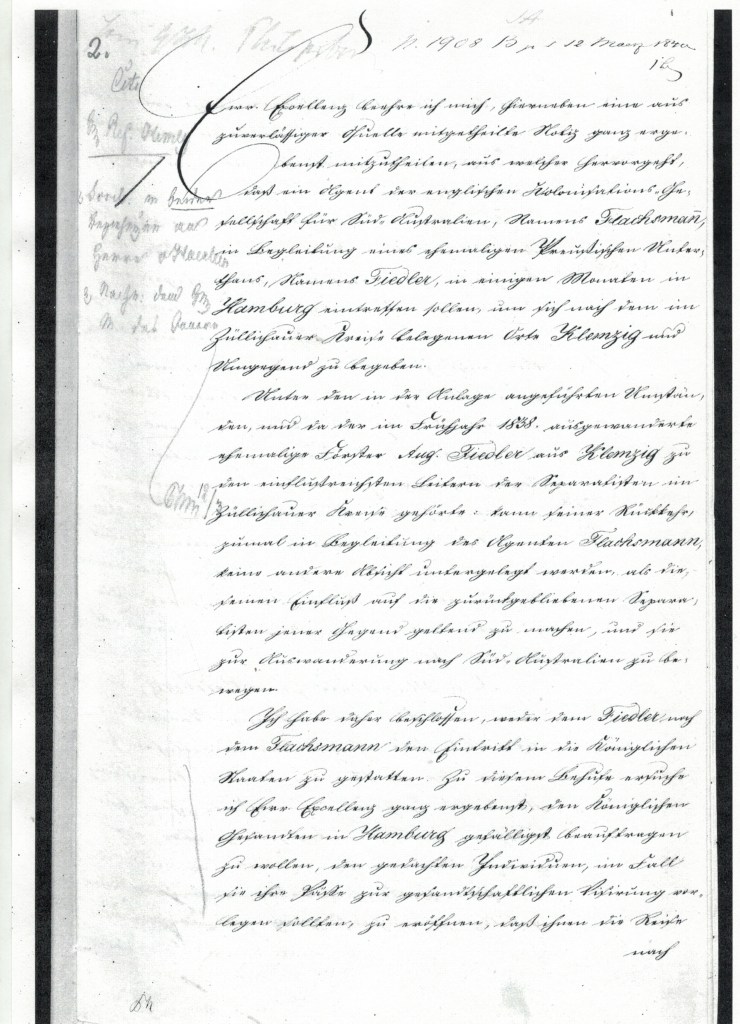 2.
N. 1908 B pr. 12 März 1840
Cito
Euer Excellenz beehre ich mich, hierneben eine aus
zuverlässiger Quelle mitgetheilte Notiz ganz erge-
benst mitzutheilen, aus welcher hervorgeht,
daß ein Agent der englischen Kolonisations-Ge-
sellschaft für Süd-Australien, Namens Flachsmañ,
in Begleitung eines ehemaligen Preußischen Unter-
thans, Namens Fiedler, in einigen Monaten in
Hamburg eintreffen sollen, um sich nach dem im
Züllichauer Kreise belegenen Orte Klemzig und
Umgegend zu begeben.
Unter den in der Anlage angeführten Umstän-
den, und da der im Frühjahr 1838. ausgewanderte
ehemalige Förster Aug. Fiedler aus Klemzig zu
den einflußreichsten Leitern der Separatisten im
Züllichauer Kreise gehörte: kann seiner Rückkehr,
zumal in Begleitung des Agenten Flachsmann,
keine andere Absicht untergelegt werden, als die,
seinen Einfluß auf die zurückgebliebenen Separa-
tisten jener Gegend geltend zu machen, und sie
zur Auswanderung nach Süd-Australien zu be-
wegen.
Ich habe daher beschlossen, weder dem Fiedler noch
dem Flachsmann den Eintritt in die Königlichen
Staaten zu gestatten. Zu diesem Behufe ersuche
ich Euer Excellenz ganz ergebenst, den Königlichen
Gesandten in Hamburg gefälligst beauftragen
zu wollen, den gedachten Individuen, im Fall
sie ihre Pässe zur gesandtschaftlichen Visirung vor-
legen sollten, zu eröffnen, daß ihnen die Reise
nach